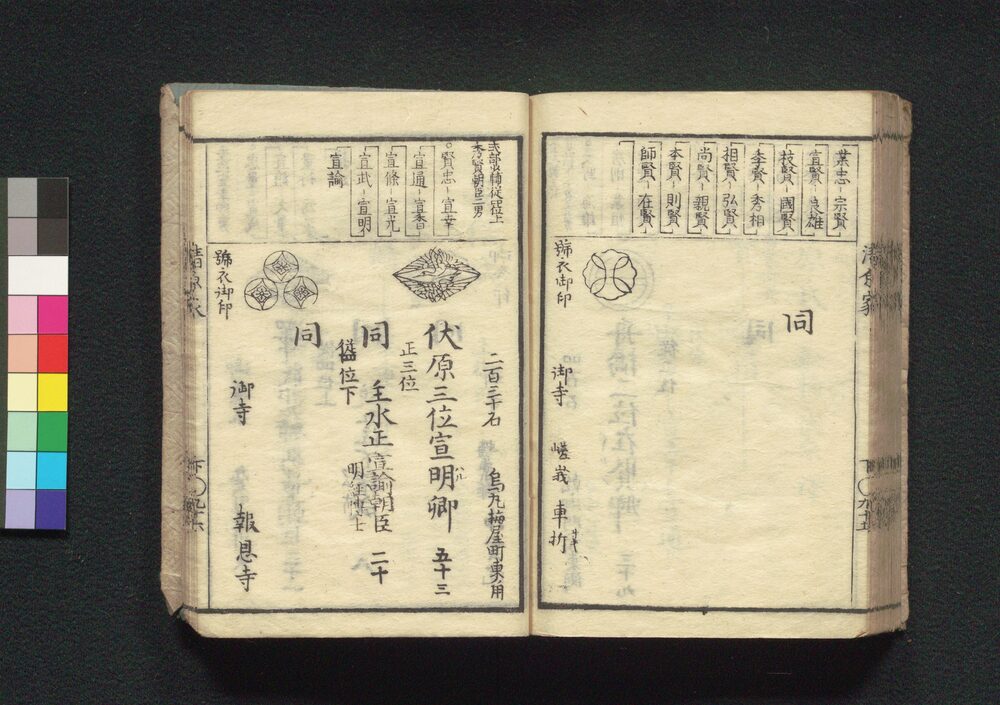 業忠 宗賢
宣賢 良雄
枝賢 國賢
季賢 秀相
相賢 弘賢
尚賢 親賢
本賢 則賢
師賢 在賢
同
号衣御印
御寺 嵯峨 車折
清原家
式部少輔従四位上
秀賢朝臣二男
賢忠 宣幸
宣通 宣香
宣條 宣光
宣武 宣明
宣諭
二百三十石 烏丸梅屋町東角
伏原三位宣明卿 五十三
正三位
同 主水正宣諭朝臣 二十
従四位下 明経博士
同
号衣御印
御寺 報恩寺